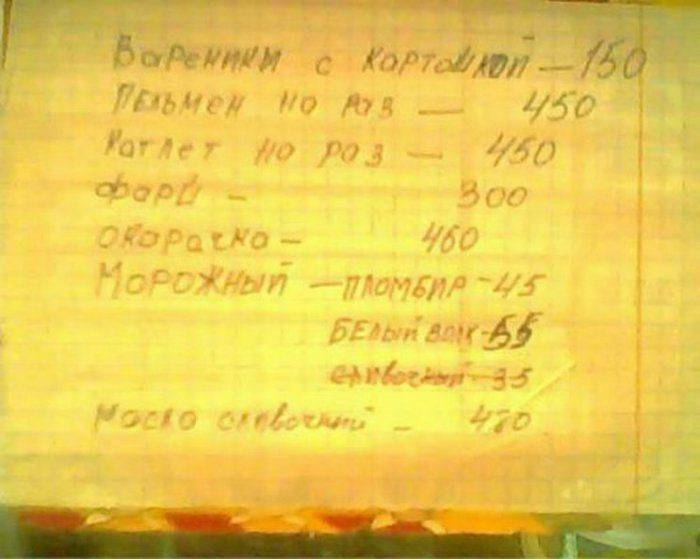 Вареники с картошкой — 150
Пельмен на раз — 450
Катлет на раз — 450
Фарш — 300
Окорачка — 460
Морожный — пломбир - 45
Белый волк - 55
сливочный - 35
Масло сливочний — 480